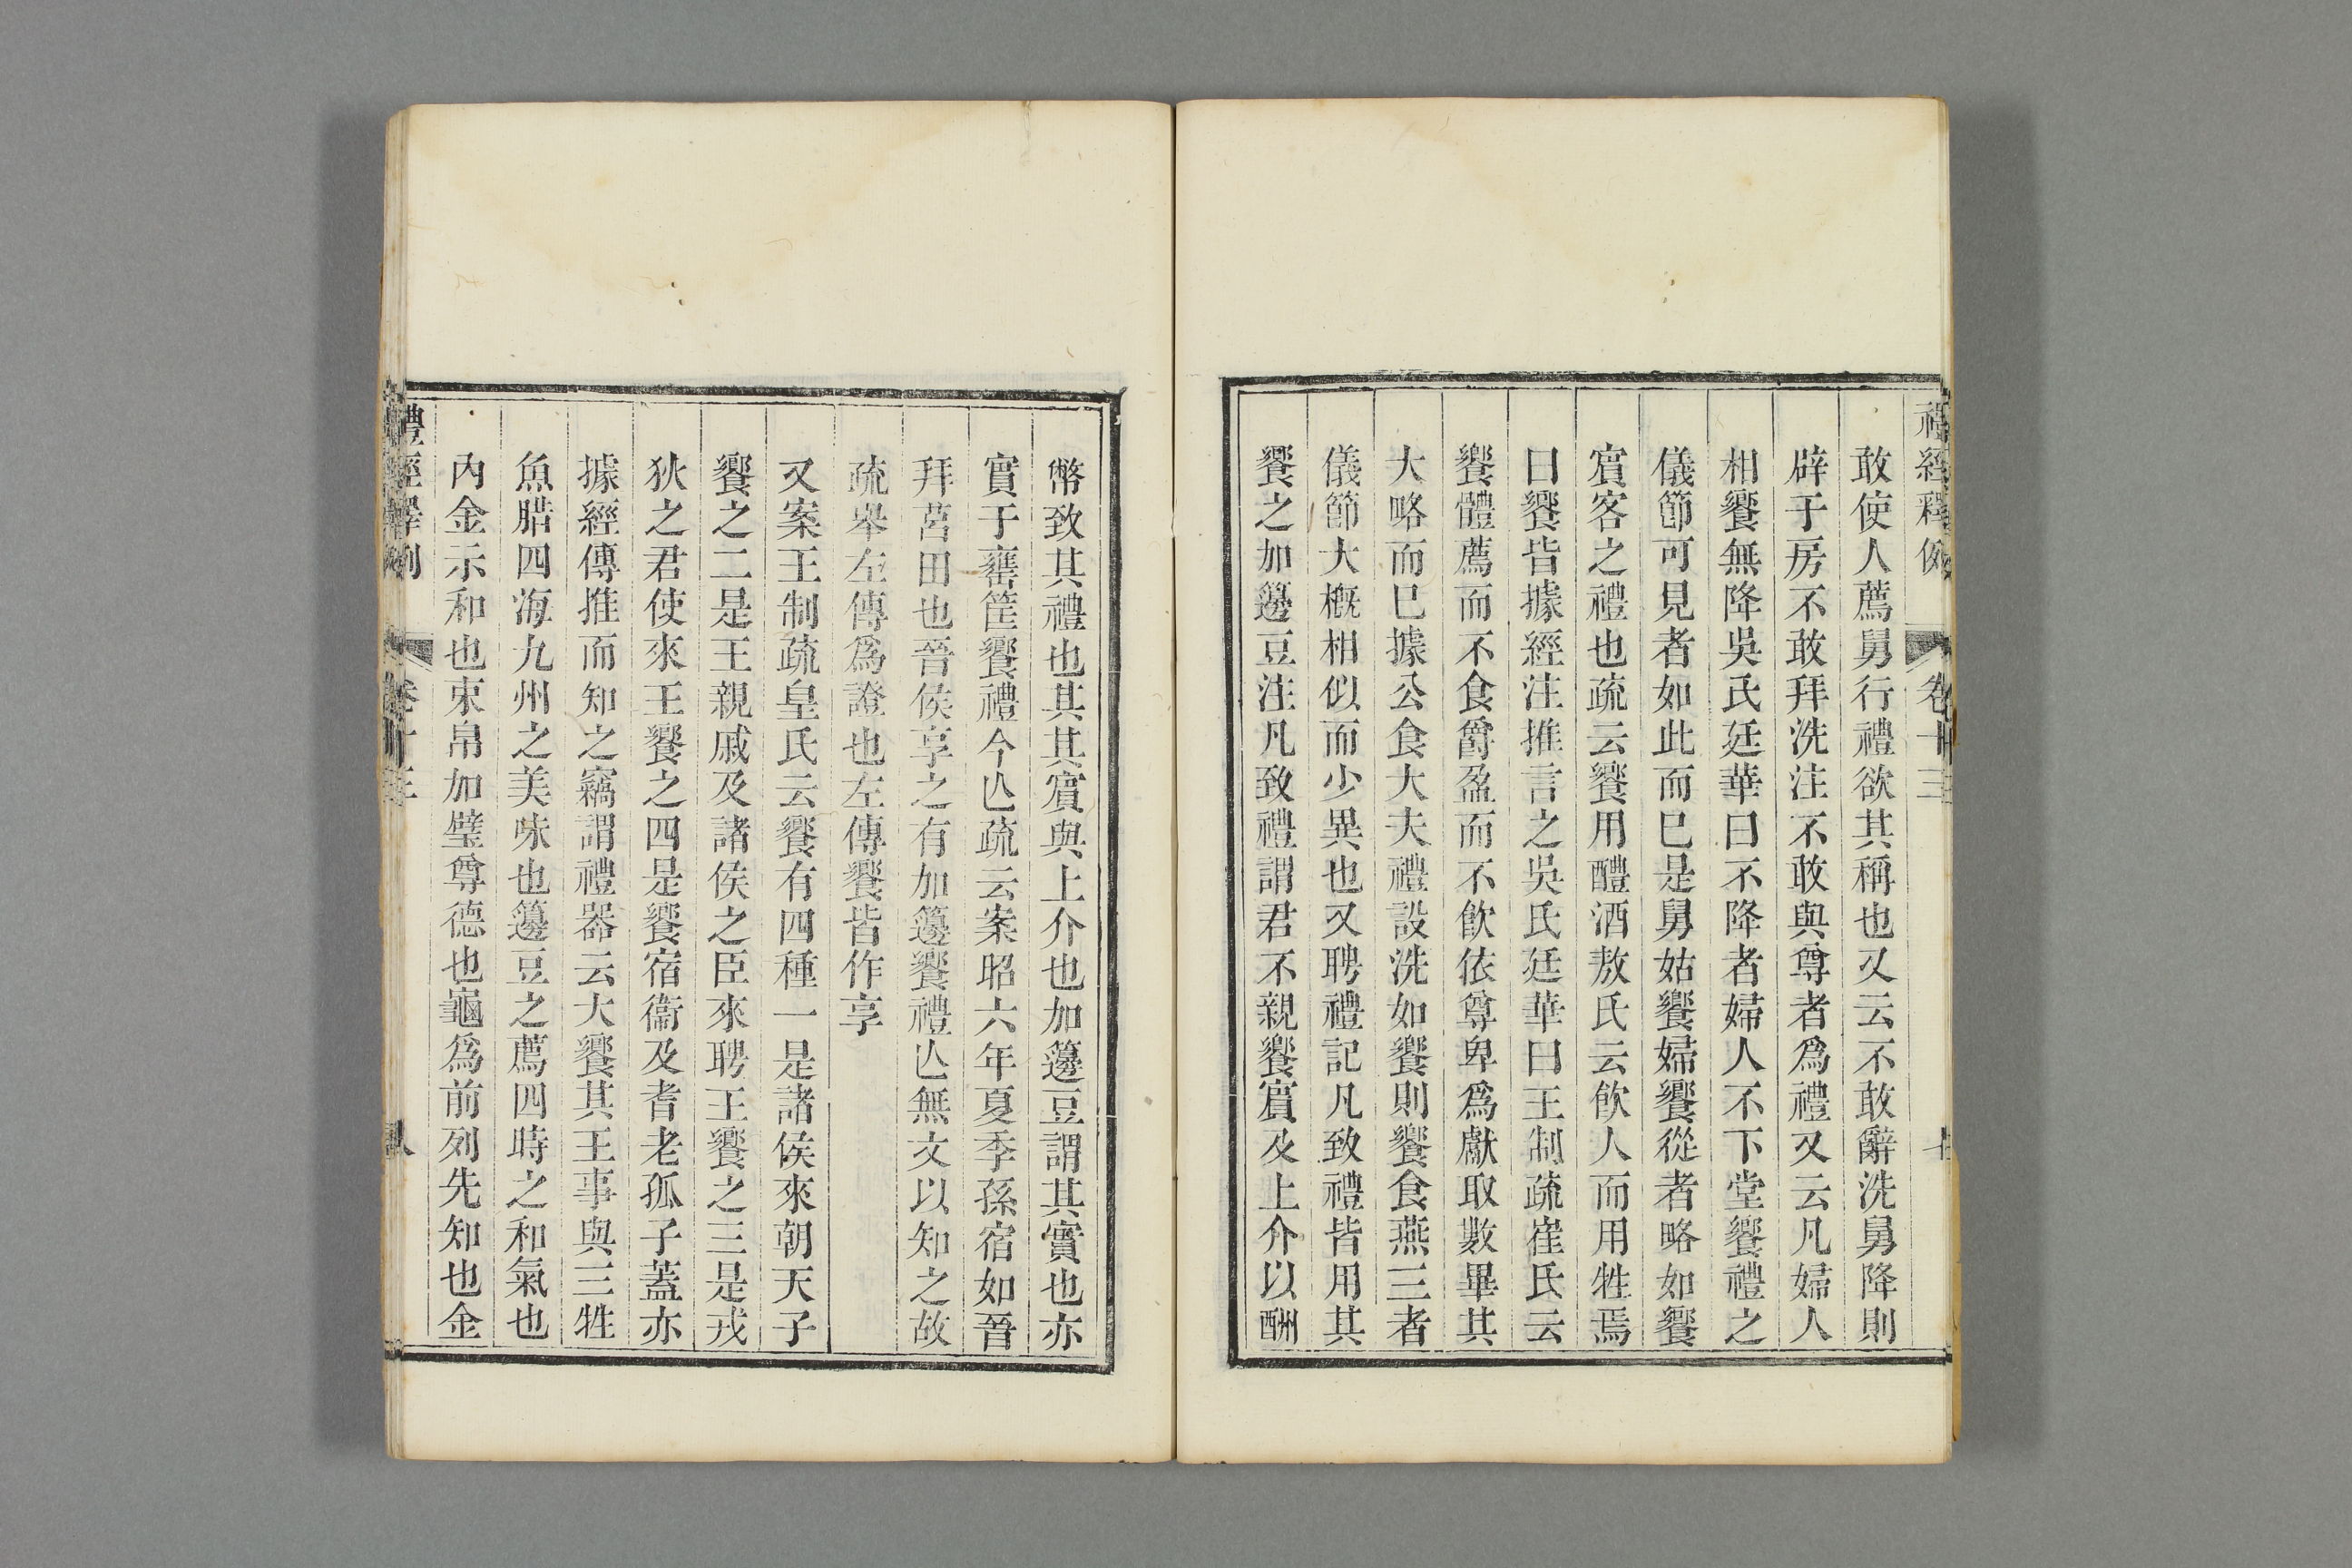 禮經釋例 卷十三
敢使人薦舅行禮欲其稱也又云不敢辭洗舅降則
辟于房不敢拜洗注不敢與尊者爲禮又云凡婦人
相饗無降吳氏廷華曰不降者婦人不下堂饗禮之
儀節可見者如此而巳是舅姑饗婦饗從者略如饗
賓客之禮也疏云饗用醴酒敖氏云飮人而用牲焉
曰饗皆據經注推言之吳氏廷華曰王制疏崔氏云
饗體薦而不食爵盈而不飮依尊卑爲獻取數畢其
大略而巳據公食大夫禮設洗如饗則饗食燕三者
儀節大槪相似而少異也又聘禮記凡致禮皆用其
饗之加籩豆注凡致禮謂君不親饗賓及上介以酬
幣致其禮也其其賓與上介也加籩豆謂其實也亦
實于罋筐饗禮今亾疏云案昭六年夏季孫宿如晉
拜莒田也晉侯享之有加籩饗禮亾無文以知之故
疏舉左傳爲證也左傳饗皆作享
又案王制疏皇氏云饗有四種一是諸侯來朝天子
饗之二是王親戚及諸侯之臣來聘王饗之三是戎
狄之君使來王饗之四是饗宿衞及耆老孤子蓋亦
據經傳推而知之竊謂禮器云大饗其王事與三牲
魚腊四海九州之美味也籩豆之薦四時之和氣也
內金示和也束帛加璧尊德也龜爲前列先知也金
禮經釋例 卷十三 八